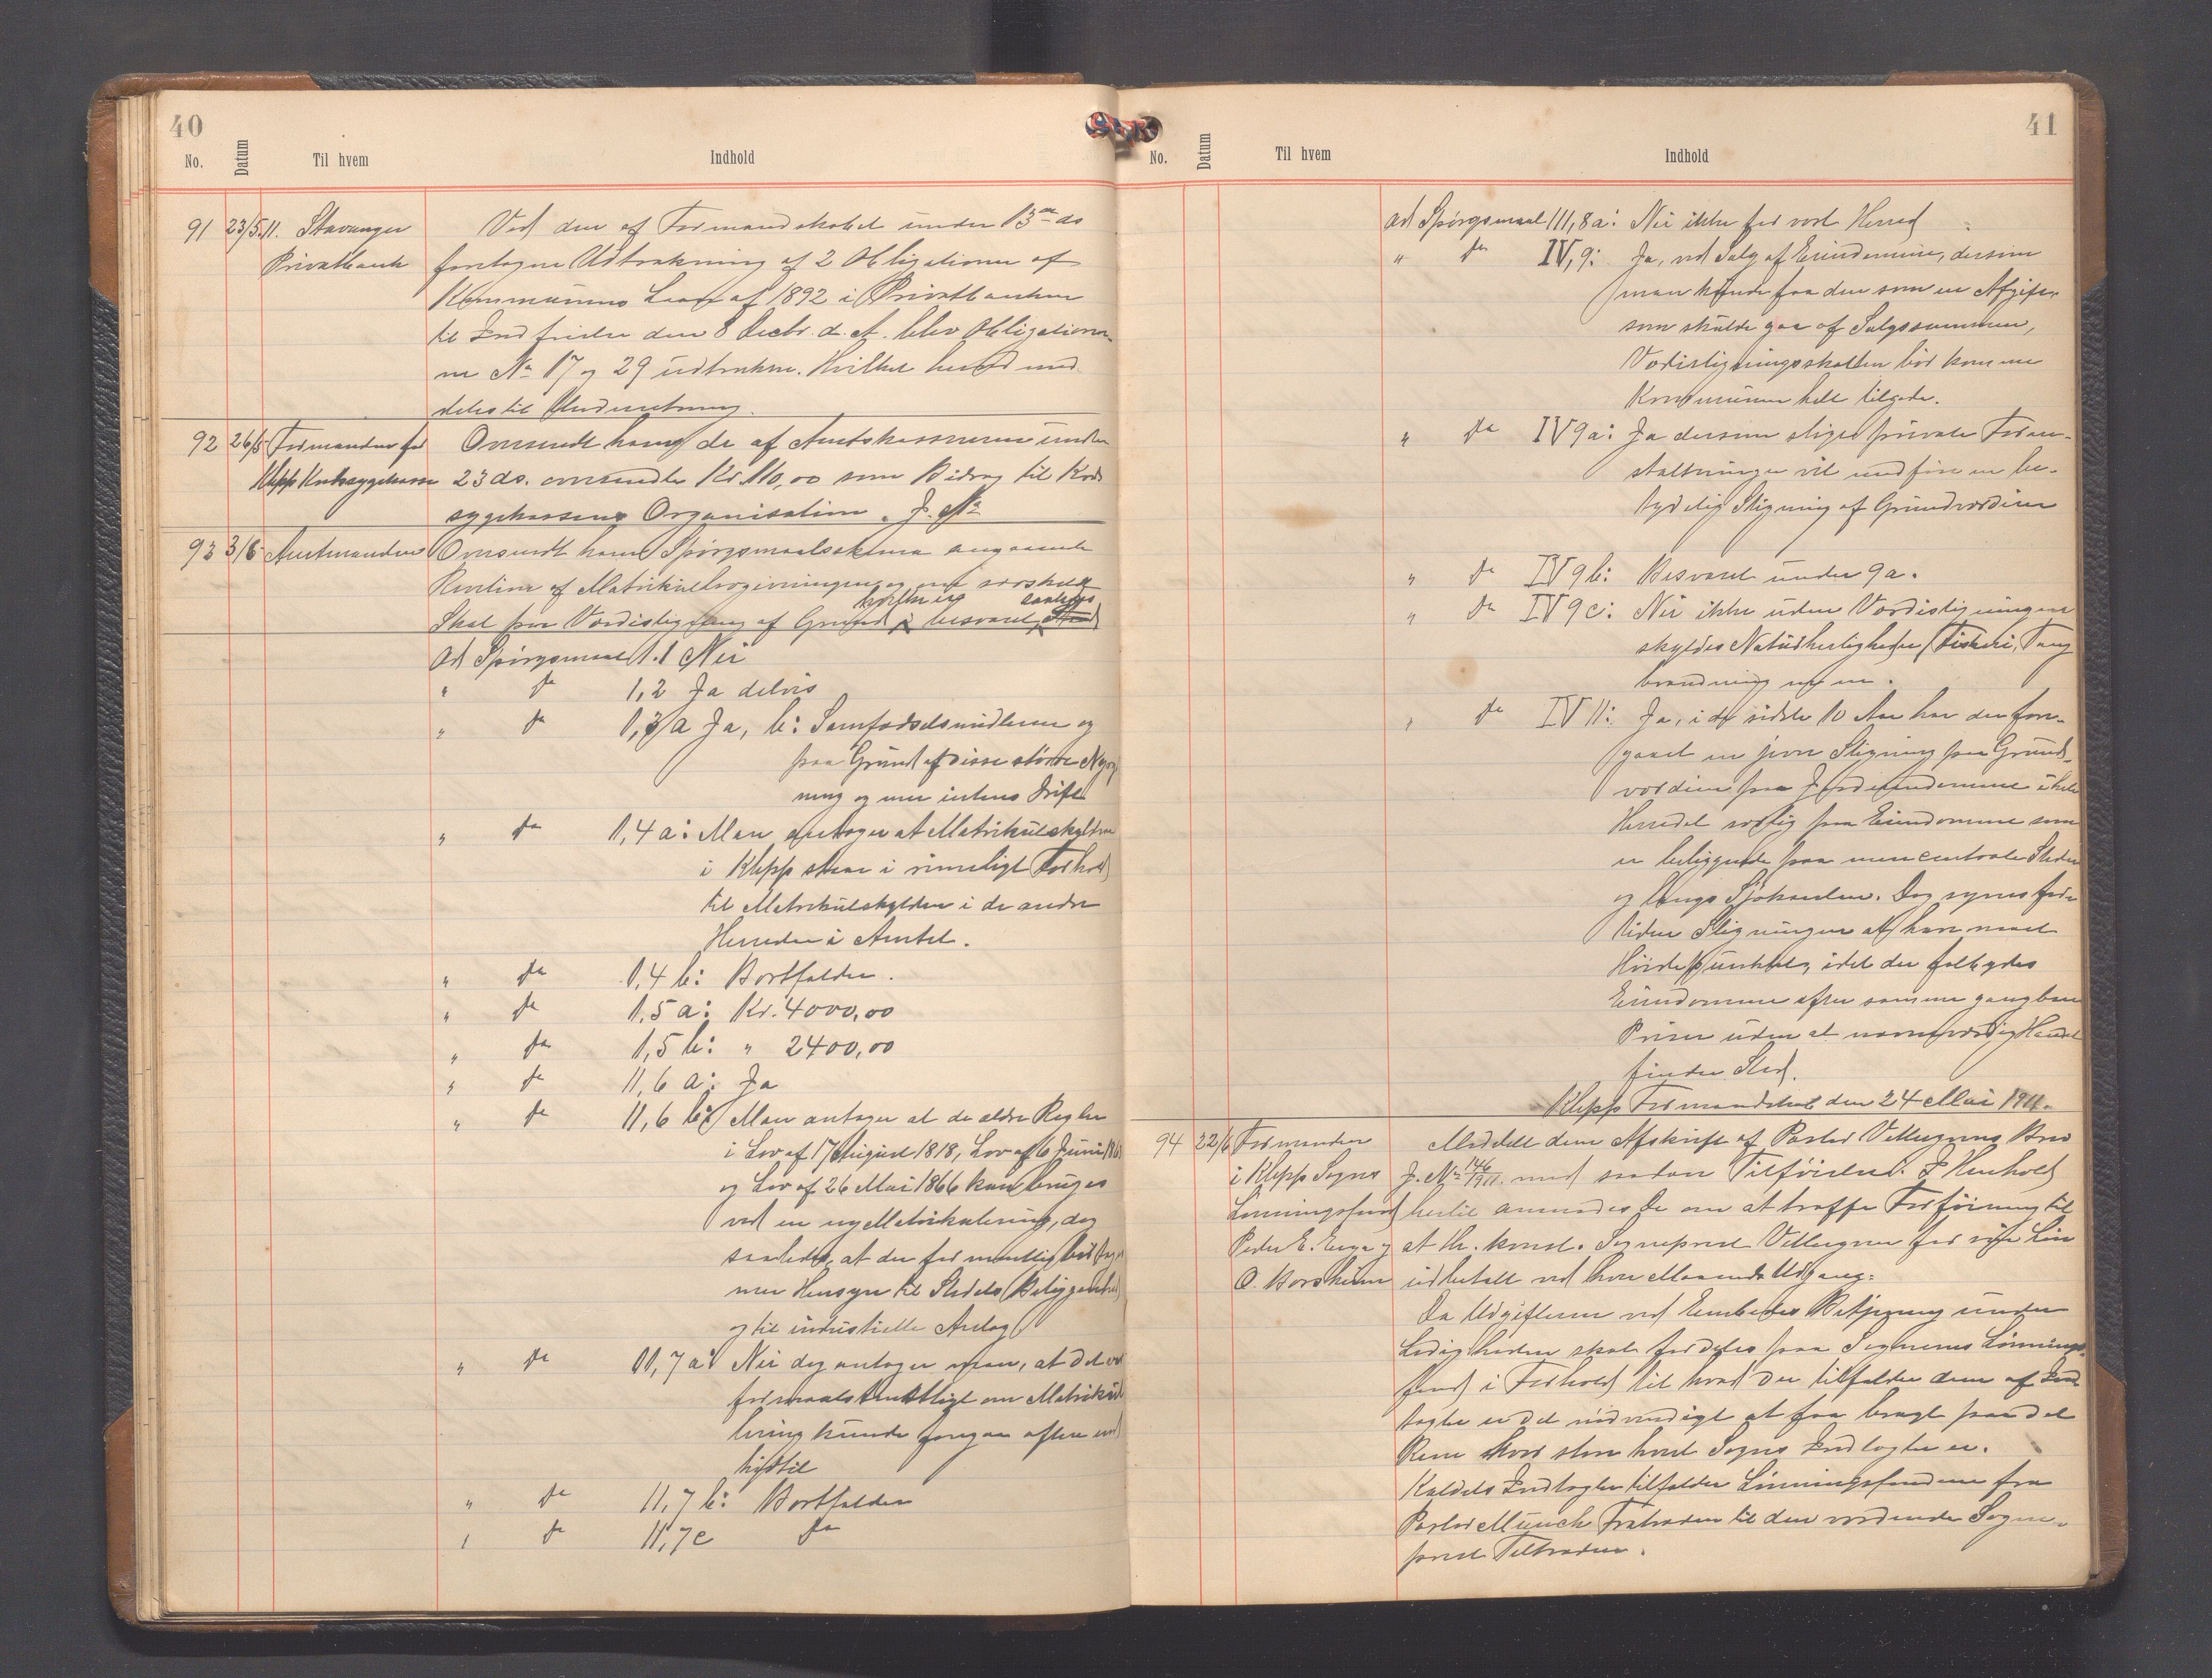 40
No. Datum Til hvem Indhold
91 23/5.11. Stavanger Ved den af Formandskabet under 13de ds
Privatbank foretagne Udtrækning af 2 Obligationer af
Kommunens Laan af 1892 i Privatbanken
til Indfrielse den 8 Decbr. d. A. blev Obligationer-
ne No 17 og 29 udtrukne. Hvilket herved med-
deles til Underretning.
92 26/5 Formanden for Oversendt ham de af Amtskassereren under
Klepp Kredssygekasse 23 ds. oversendte Kr. 110,00 som Bidrag til Kreds
sygekassens Organisation. J. No
93 3/6 Amtmanden Oversendt ham Spörgsmaalsskema angaaende
Revision af Matrikullovgivningen og om særskilt
Skat paa Værdistigning af Grund besvaret saaledes
Ad Spörgsmaal 1.1 Nei
" do 1,2 Ja delvis
" do 1,3 a Ja, b: Samfærdselsmidlerne og
paa Grund af disse större Nyryd
ning og mer intens Drift
" do 1,4 a: Man antager at Matrikulskylden
i Klepp staar i rimeligt Forhold
til Matrikulskylden i de andre
Herreder i Amtet.
" do 1,4 b: Bortfalder.
" do 1,5 a: Kr. 4000,00
" do 1,5 b: " 2400,00
" do 11,6 a: Ja
" do 11,6 b: Man antager at de ældre Regler
i Lov af 17 August 1818, Lov af 6 Juni
og Lov af 26 Mai 1866 kan bruges
ved en ny Matrikulering, dog
saaledes, at der formentlig bör tages
mer Hensyn til Stedets Beliggenhed
og til industrielle Anlæg
" do 11,7 a: Nei dog antager man, at det var
formaalstjenligt om Matriku
lering kunde foregaa oftere end
hidtil
" do 11,7 b: Bortfalder
" do 11,7 c do
41
No. Datum Til hvem Indhold
ad Spörgsmaal 111,8a: Nei ikke for vort Herred
" do IV,9: Ja, ved Salg af Eiendomme, dersom
man kunde faa den som en Afgift,
som skulde gaa af Salgssummen,
Værdistigningsskatten bör komme
Kommunen helt tilgode.
" do IV 9a: Ja dersom slige private Foran-
staltninger vil medföre en be-
tydelig Stigning af Grundværdien
" do IV 9b: Besvaret under 9a.
" do IV 9c: Nei ikke uden Værdistigningen
skyldes Naturherligheder (Fiskeri, Tang
brænding m m.
" do IV 11: Ja, i de sidste 10 Aar har der fore-
gaaet en jevn Stigning paa Grund-
værdien paa Jordeiendomme i hele
Herredet særlig paa Eiendomme som
er beliggende paa mer centrale Steder
og langs Sjökanten. Dog synes for
tiden Stigningen at have naaet
Höidepunktet, idet der falbydes
Eiendomme efter samme gangbare
Priser uden at nævneværdig Handel
finder Sted.
Klepp Formandskab den 24 Mai 1911.
94 22/6 Formanden Meddelt dem Afskrift af Pastor Vellesens Brev
i Klepp Sogns J. No 146/1911 med saadan Tilföielse: I Henhold
Lönningsfond hertil anmodes De om at træffe Forföining til
Peder E. Erga og at Hr. konst. Sogneprest Vellesen faar sin Lön
O. Borsheim udbetalt ved hver Maaneds Udgang.
Da Udgifterne ved Embedets Betjening under
Ledigheden skal fordeles paa Sognenes Lönnings-
fond i Forhold til hvad der tilfalder dem af Ind
tægter er det nödvendigt at faa bragt paa det
Rene hvor stor hvert Sogns Indtægter er.
Kaldets Indtægter tilfalder Lönningsfondene fra
Pastor Munch Fratræden til den vordende Sogne-
prest Tiltræden.